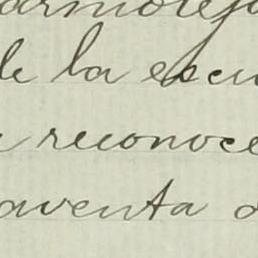 armoleja
de la escu
reconoce
aventa d